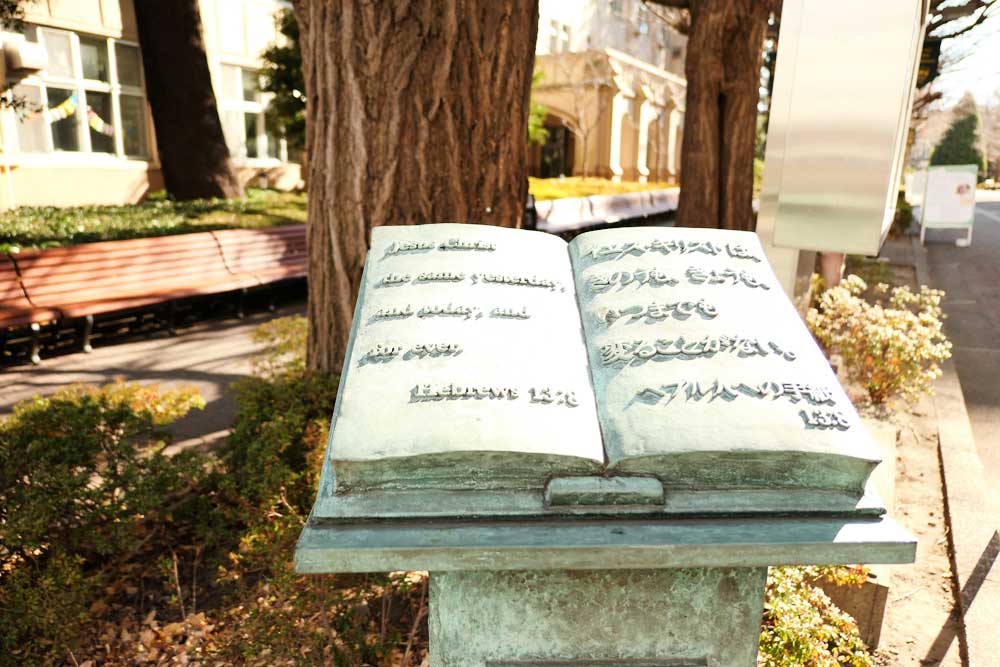 Jesus Christ
the same yesterday,
and today, and
for ever.
Hebrews 13:8
イエス・キリストは
きのうも、きょうも、
いつまでも
変ることがない。
ヘブル人への手紙
13:8